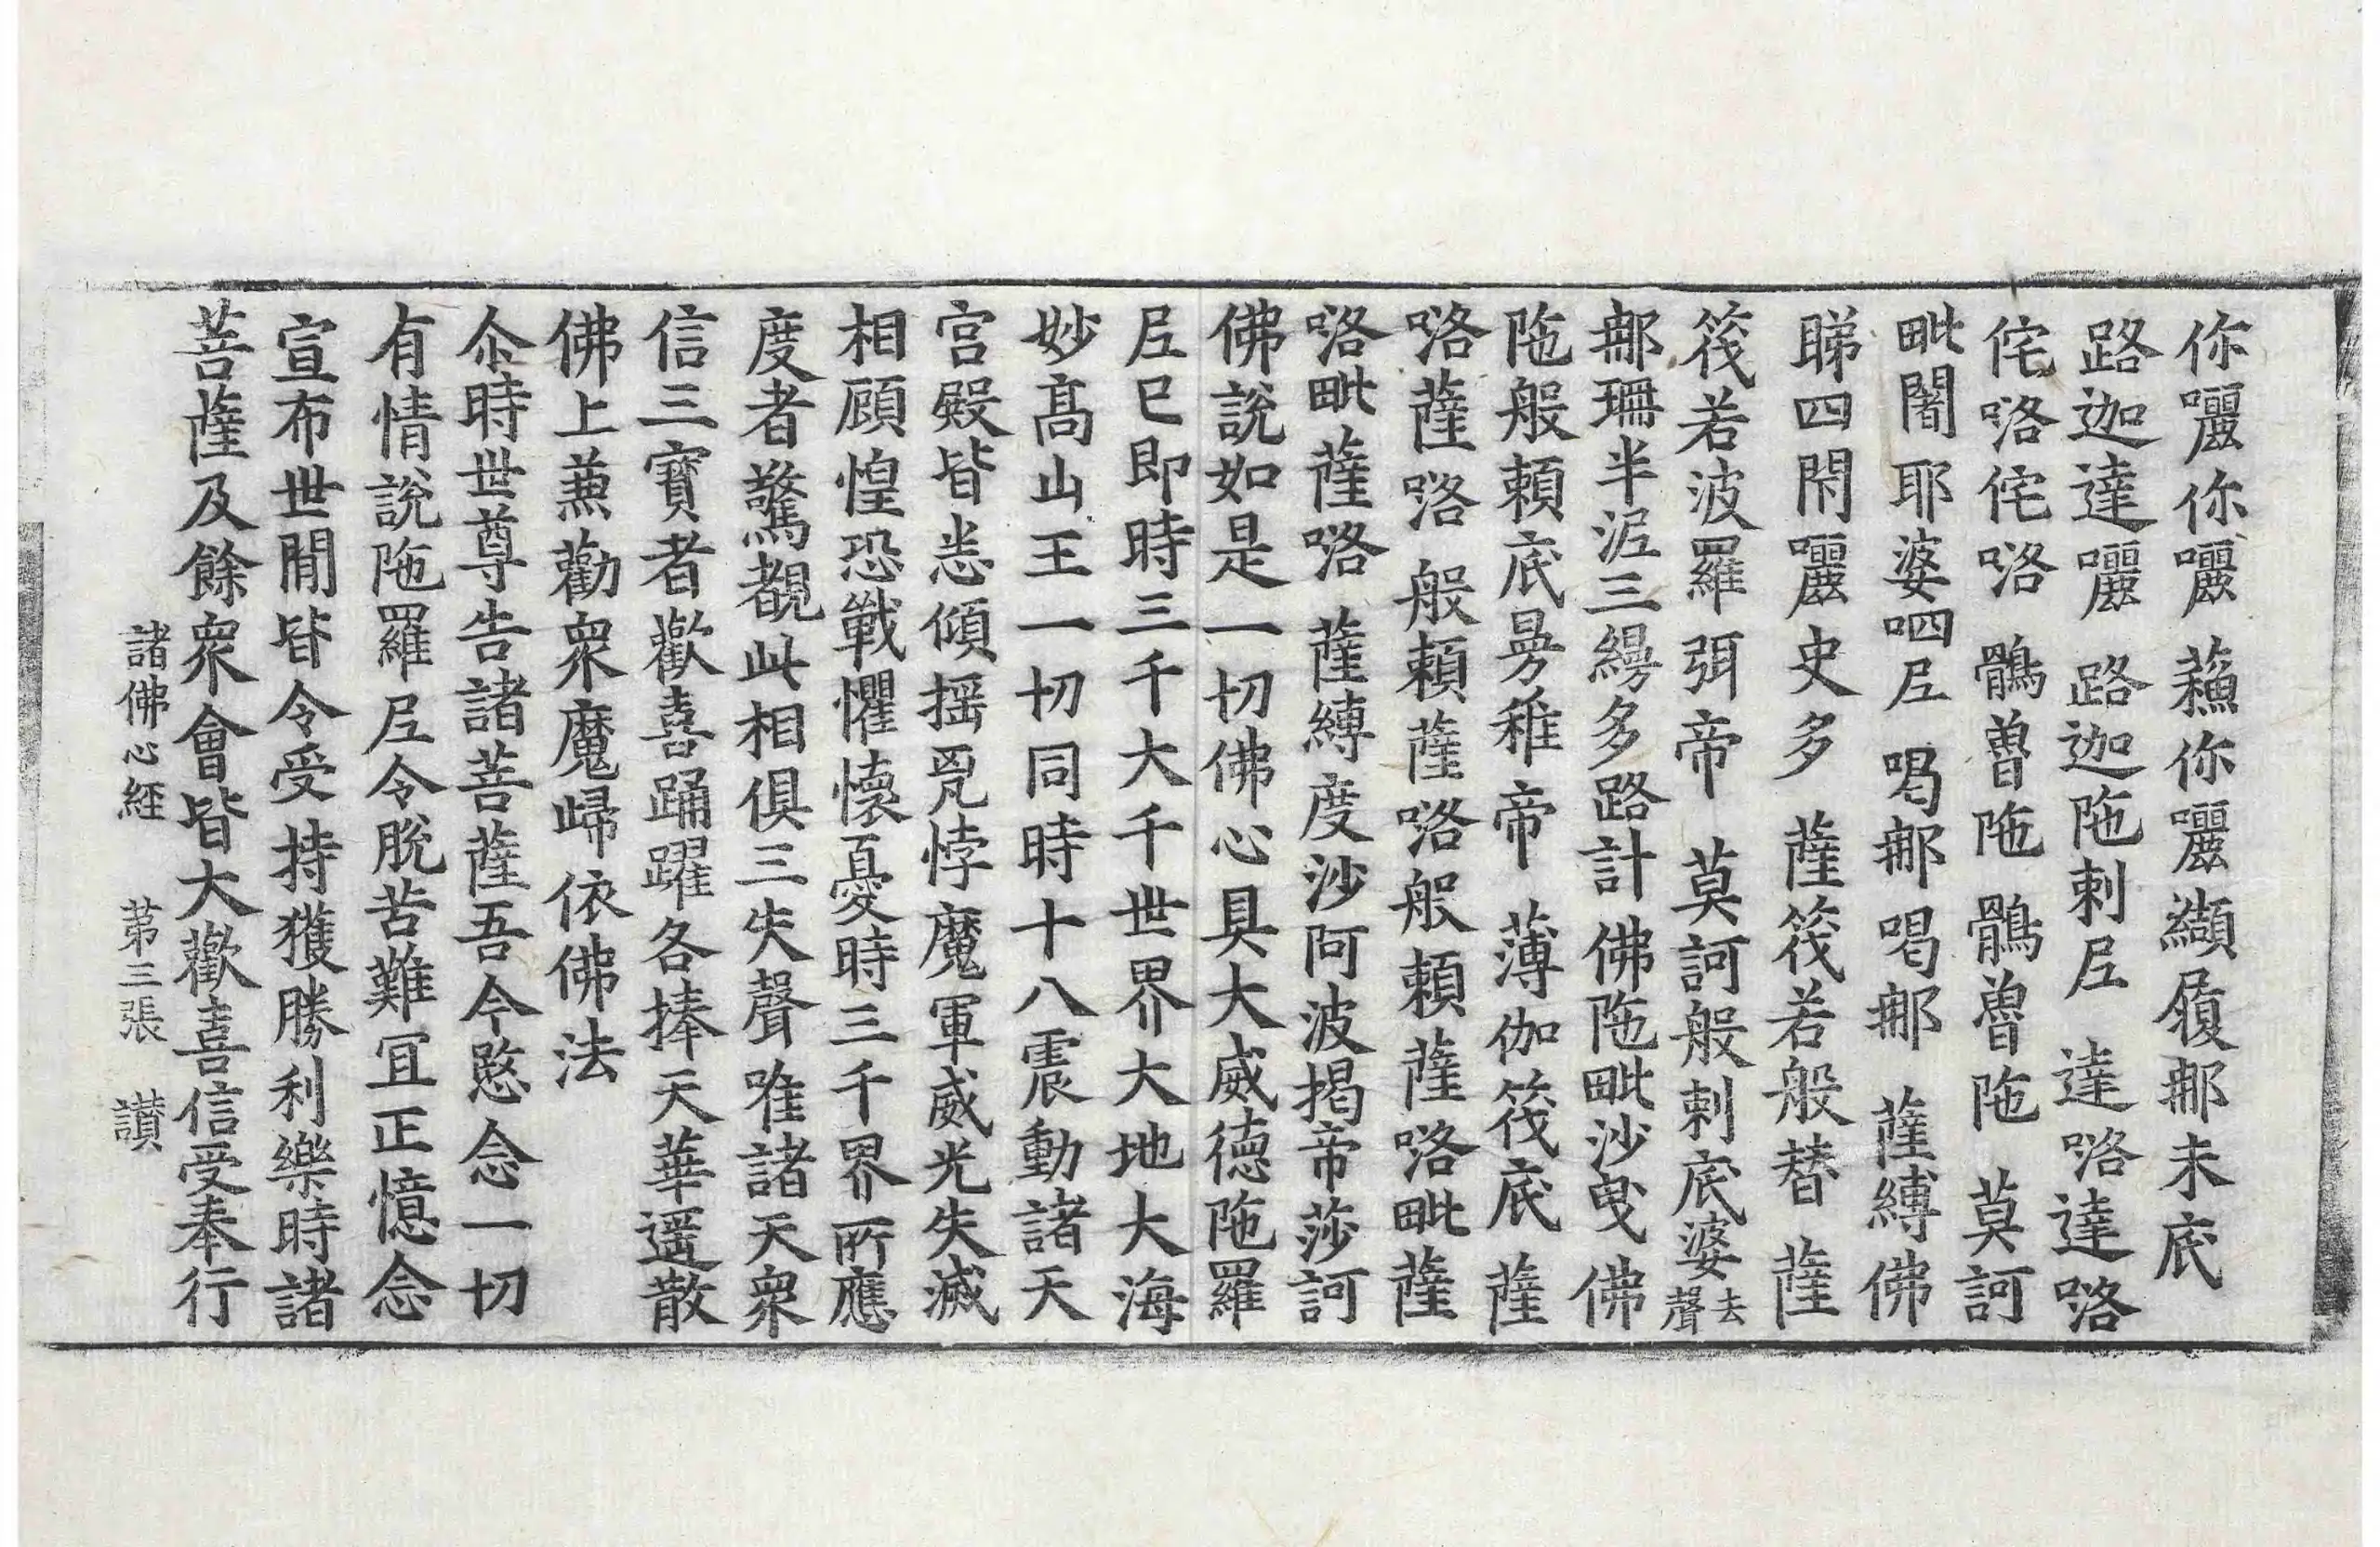 你囉你囉 蘓你囉纈履郍未底
路迦達囉 路迦陁剌𡰱 達咯達咯
侘咯侘咯 鶻曾陁 鶻曾陁 莫訶
毗闍耶婆呬𡰱 喝郍喝郍 薩縛佛
睇四閇囉史多 薩筏若般替 薩
筏若波羅弭帝 莫訶般剌底婆去聲
郍珊半泥三緆多路計 佛陁毗沙曳 佛
陁般賴底㬅稚帝 薄伽筏底 薩
咯薩咯 般賴薩咯般賴薩咯毗薩
咯毗薩咯 薩縛度沙阿波揭帝莎訶
佛說如是一切佛心具大威德陁羅
𡰱巳即時三千大千世界大地大海
妙髙山王一切同時十八震動諸天
宮殿皆悉傾摇𠒋悖魔軍威光失滅
相顧惶恐戰懼懷憂時三千界所應
度者驚覩此相俱三失聲唯諸天衆
信三寳者歡喜踊躍各捧天華遥散
佛上兼勸衆魔歸依佛法
尒時世尊告諸菩薩吾今愍念一切
有情說陁羅𡰱令脫苦難冝正憶念
宣布世閒皆令受持獲勝利樂時諸
菩薩及餘衆會皆大歡喜信受奉行
諸佛心經 第三張 讃